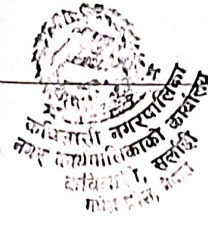 कविलासी नगरपालिका
नगर कार्यपालिकाको कार्यालय
कविलासी, सर्लाही